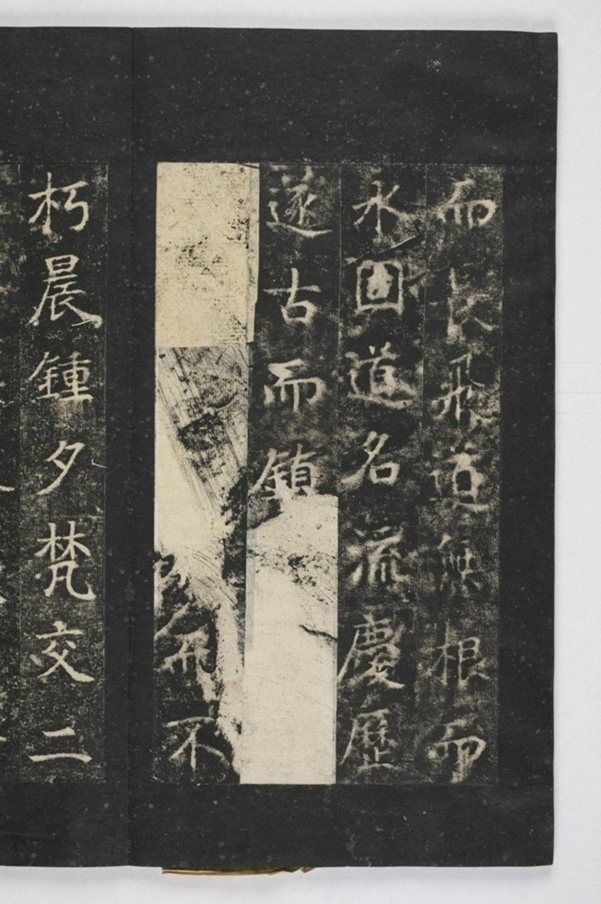 而長飛道無根而
永固道名流慶歷
遂古而鎮
而不
朽晨鍾夕梵交二